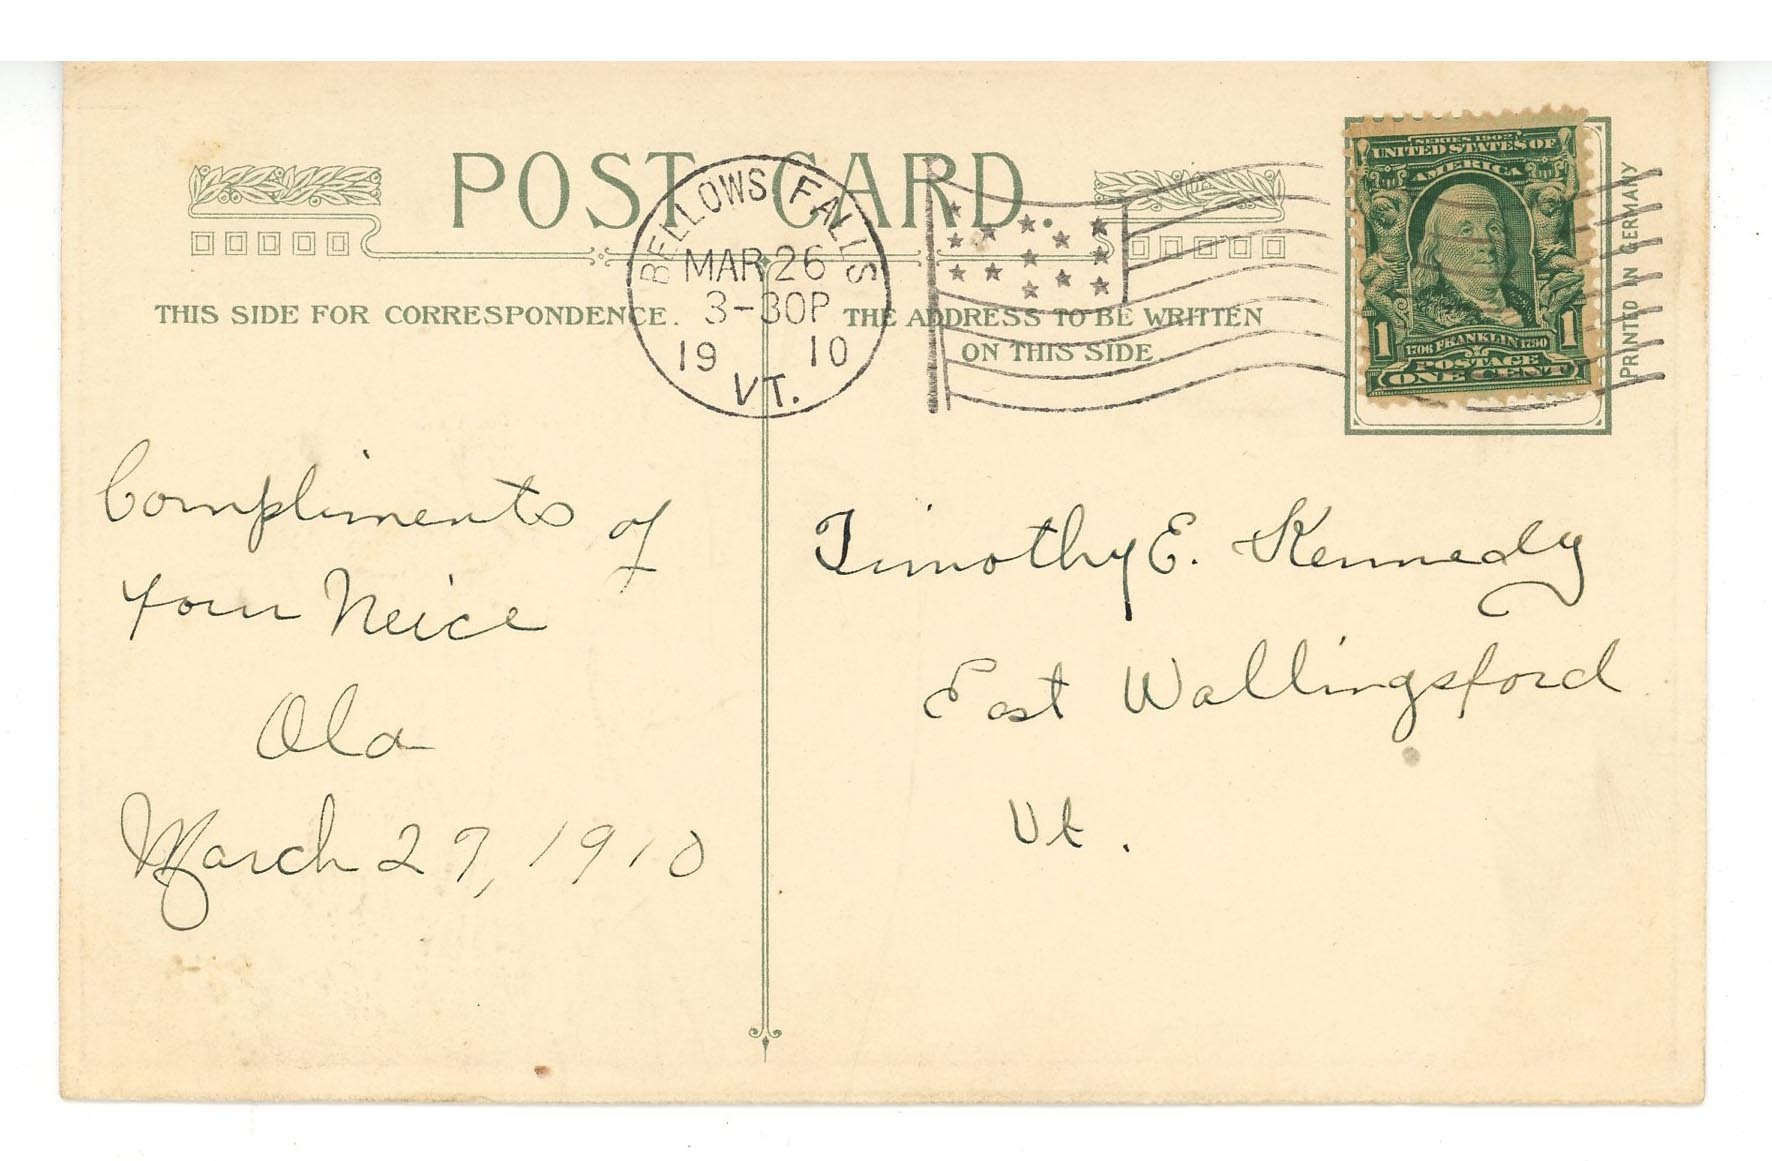 POST CARD.
BELLOWS FALLS
MAR 26
3-30P
19 10
VT.
THIS SIDE FOR CORRESPONDENCE.
THE ADDRESS TO BE WRITTEN
ON THIS SIDE
SERIES 1902
UNITED STATES OF
AMERICA
1 1
1706 FRANKLIN 1790
POSTAGE
ONE CENT
PRINTED IN GERMANY
Compliments of
Your Neice
Ola
March 27, 1910
Timothy E. Kennedy
East Wallingsford
Vt.